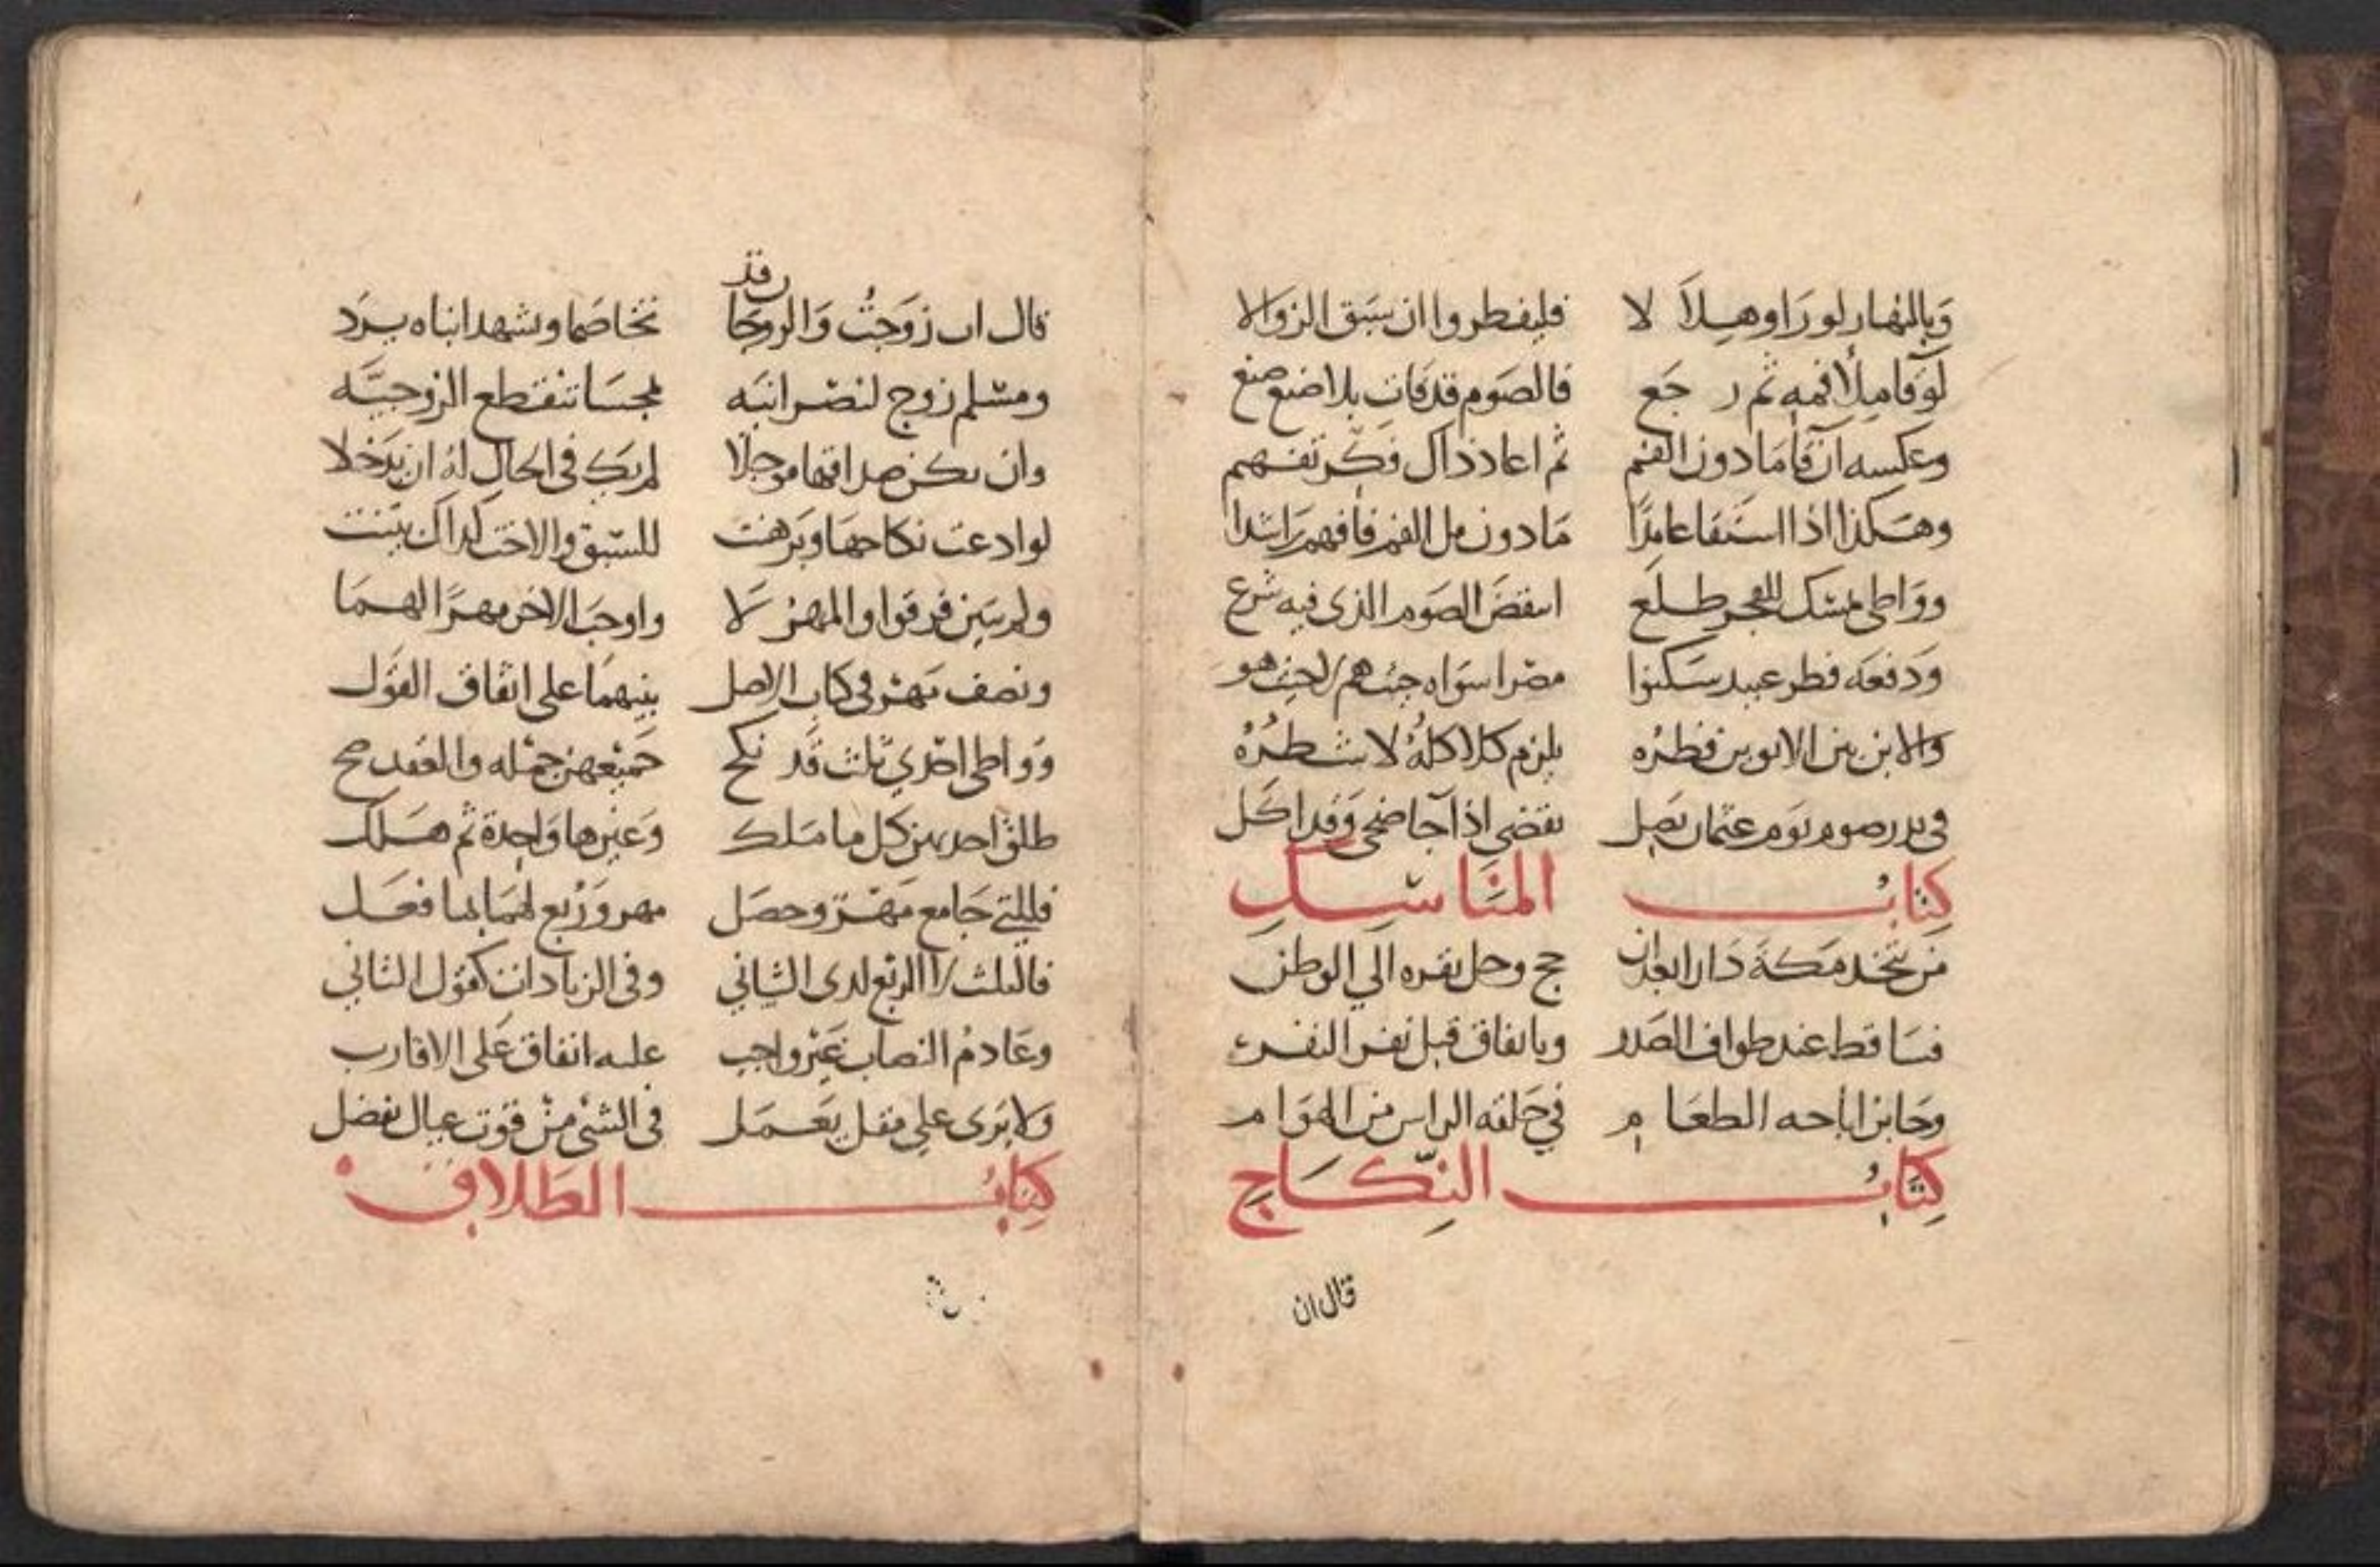 وَبالنهار لو رَاوهِلاَ لا فليفطروا ان سَبَق الزوالا
لَو قا مِلأ فمه ثم رجَع فالصَوم قد فات بلا صنع صنع
وعكسه ان قا مَا دون الفم ثم اعاد ذاك فكّر تفهم
وهكذا اذا استقا عامدًا مَا دون مل الفم فافهم رَاشدا
ووَاطى للفجر طلع الصَوم الذى فيه شرع
وَدفعه فطر عبيد سَكنوا مصرا سوَاه
والابن بين الابوين فطرُه يلزم كلا كلهُ لا شطرُهُ
فى نذر صوم يَوم عثمان يَصِل يقضى اذا جا ضحى وَقد اكَل
كِتابُ المنَاسِكِ
مَن يتخذ مَكة دَارا بعد ان حج وحل نفره الي الوطن
فسَاقط عند طواف الصَدر وباتفاق قبل نفر النفر
وجَايز اباحه الطعَام في حَلقه الراس من الهوَام
كِتَابُ النِّكَاحِ
قال ان
قال ان زوَجتُ وَالزوجَان قد تخاصَما وشهد ابناه يرَد
ومسْلم زوج لنصْرانيَه تنقطع الزوجيَّه
وان يكن صداقها موجلا لم يك فى الحال له ان يَدخلا
لو ادعت نكاحهَا وبَرهنت للسَّبق والاخت كذاك بَيَّنت
ولم يبَين فرقوا والمهرُ لا واوجَب الاخر مهرًا لهمَا
ونصف مَهْر فى كتاب الاصل بينهمَا على اتفاق القوَل
ووَاطى احدي ثلث قَد نكح جَميْعهن جمْله والعقد صح
طلق احديهن كل ما مَلك وَغيرها وَاحِدة ثم هَلك
فللتي جَامع مَهْر وحصَل مهر وَرُبع لهمَا بما فعَل
فالثلث الربع لدى الثاني وفى الزيادات كقول الثاني
وعَادمُ النصاب غَيْر واجب عليه انفاق عَلى الاقارب
وَلا يَرى علي مقل يَعمَل فى الشىْ مِنْ قوت عيال يفضل
كِتابُ الطَلاقِ